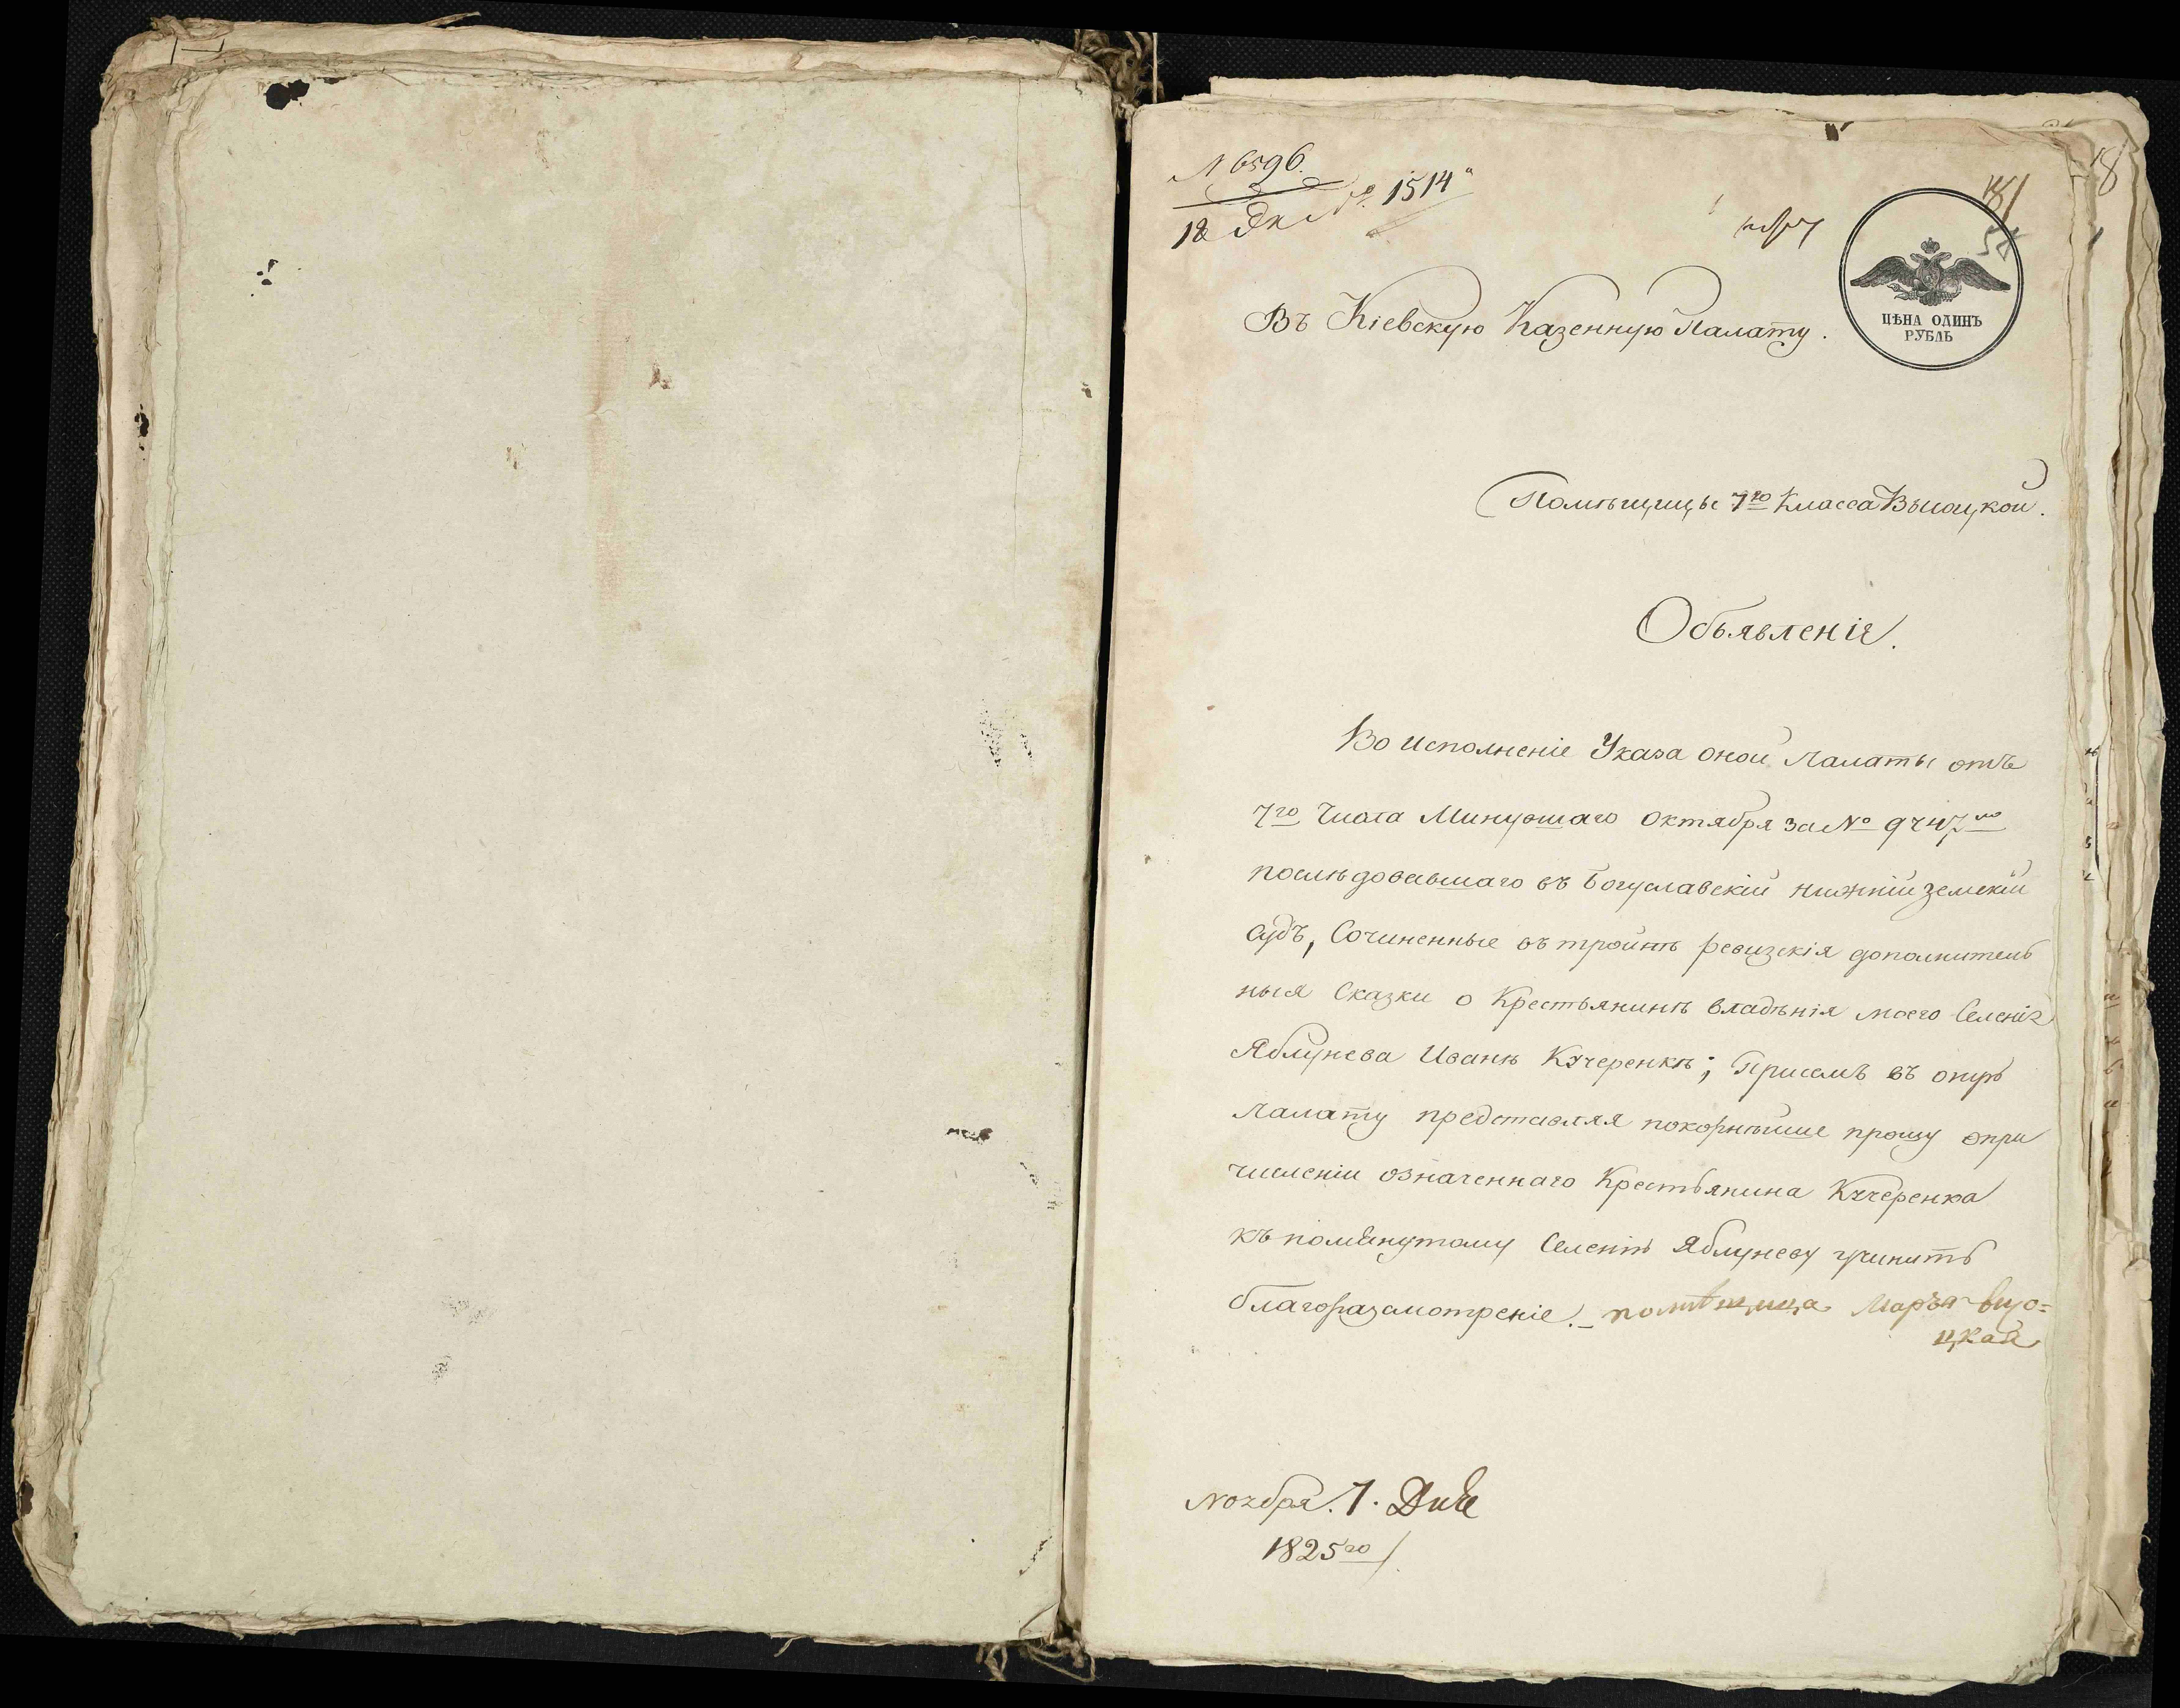 N 6596.
18 Дк № 1514
181
ЦѢНА ОДИНЪ
РУБЛЬ
Въ Кіевскую Казенную Палату.
Помѣщицы 7го Класса Высоцкой.
Объявленіе.
Во исполненіе Указа оной Палаты отъ
7го Числа Минувшаго Октября за № 9447мъ
послѣдовавшаго въ Богуславскій нижній земскій
судъ, Сочиненные въ тройнѣ ревизскія дополнитель
ныя Сказки о Крестьянинѣ владѣнія моего Селенія
Яблунева Иванѣ Кучеренкѣ; Присемъ въ оную
Палату представляя покорнѣйше прошу опри
численіи означеннаго Крестьянина Кучеренка
къ помянутому Селенію Яблуневу учинить
благоразсмотреніе. помѣщица Марья высо=
цкая
Ноября. 7. Дня
1825го